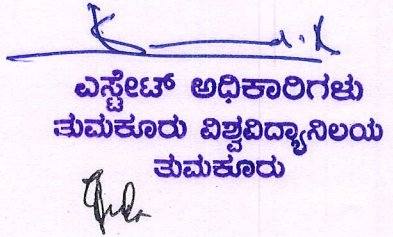 ಎಸ್ಟೇಟ್ ಅಧಿಕಾರಿಗಳು
ತುಮಕೂರು ವಿಶ್ವವಿದ್ಯಾನಿಲಯ
ತುಮಕೂರು